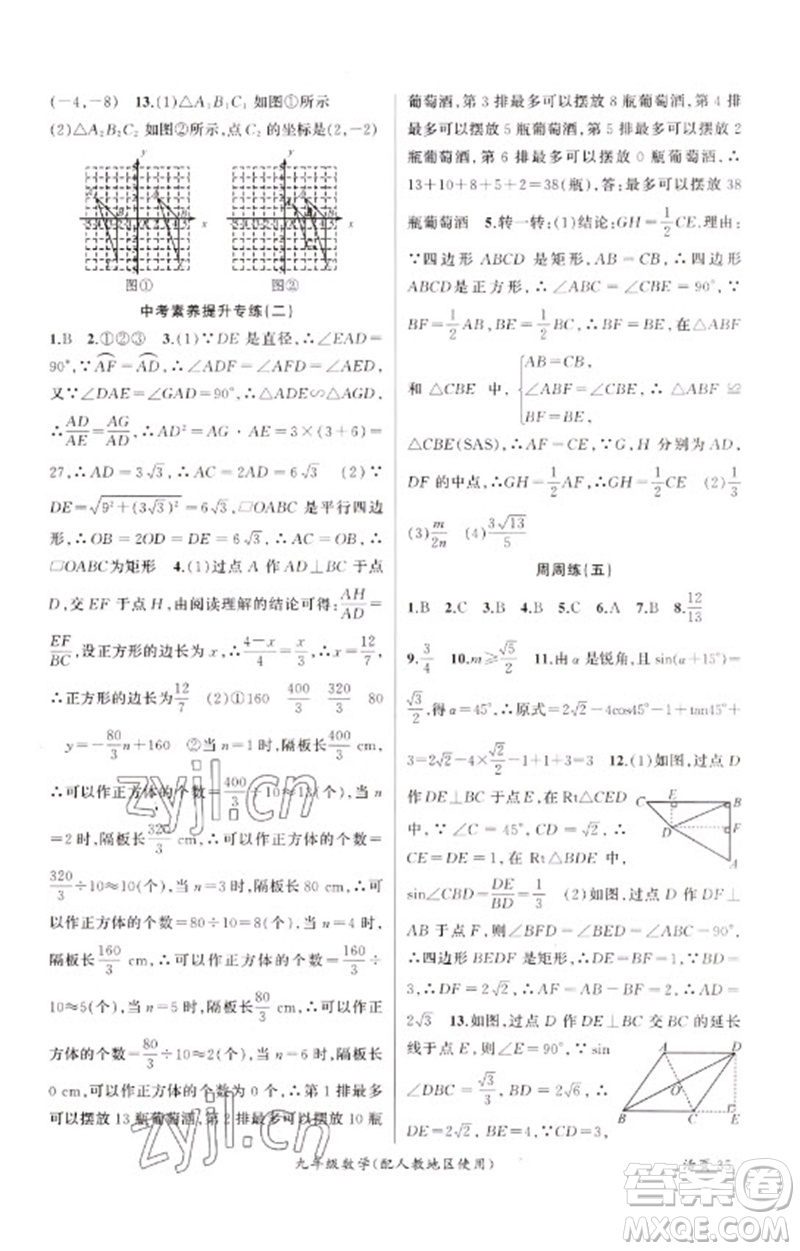 (-4,-8) 13.(1)△A₁B₁C₁ 如图①所示
(2)△A₂B₂C₂ 如图②所示,点C₂ 的坐标是(2,-2)
图① 图②
中考素养提升专练(二)
1.B 2.①②③ 3.(1)∵DE 是直径,∴∠EAD=
90°,∵AF=AD,∴∠ADF=∠ADE=∠AED,
又∵∠DAE=∠GAD=90°,∴△ADE∽△AGD,
∴AD/AE=AG/AD,∴AD²=AG·AE=3×(3+6)=
27,∴AD=3√3,∴AC=2AD=6√3 (2)∵
DE=√(9²+(3√3)²)=6√3,□OABC 是平行四边
形,∴OB=2OD=DE=6√3,∴AC=OB,∴
□OABC为矩形 4.(1)过点 A 作 AD⊥BC 于点
D,交 EF 于点 H,由阅读理解的结论可得:AH/AD=
EF/BC,设正方形的边长为 x,∴(4-x)/4=x/3,∴x=12/7,
∴正方形的边长为12/7 (2)①160 400/3 320/3 80
y=-80/3n+160 ②当 n=1 时,隔板长400/3 cm,
∴可以作正方体的个数=400/3÷10≈13(个),当 n=
2 时,隔板长320/3 cm,∴可以作正方体的个数=
320/3÷10≈10(个),当 n=3 时,隔板长 80 cm,∴可以
作正方体的个数=80÷10=8(个),当 n=4 时,
隔板长160/3 cm,∴可以作正方体的个数=160/3÷
10≈5(个),当 n=5 时,隔板长80/3 cm,∴可以作正
方体的个数=80/3÷10≈2(个),当 n=6 时,隔板长
0 cm,∴可以作正方体的个数为 0 个,∴第 1 排最
多可以摆放 13 瓶葡萄酒,第 2 排最多可以摆放 10 瓶
葡萄酒,第 3 排最多可以摆放 8 瓶葡萄酒,第 4 排
最多可以摆放 5 瓶葡萄酒,第 5 排最多可以摆放 2
瓶葡萄酒,第 6 排最多可以摆放 0 瓶葡萄酒,∴
13+10+8+5+2=38(瓶),答:最多可以摆放 38
瓶葡萄酒 5.转一转:(1)结论:GH=1/2CE.理由:
∵四边形 ABCD 是矩形,AB=BC,∴四边形
ABCD是正方形,∴∠ABC=∠CBE=90°,∵
BF=1/2AB,BE=1/2BC,∴BF=BE,在△ABF
和△CBE 中,{AB=CB, ∠ABF=∠CBE, BF=BE, ∴△ABF≌
△CBE(SAS),∴AF=CE,∵G、H 分别为 AD、
DF 的中点,∴GH=1/2AF,∴GH=1/2CE (2)1/2
(3)m/2n (4)3√13/5
周周练(五)
1.B 2.C 3.B 4.B 5.C 6.A 7.B 8.12/13
9.3/4 10.m≥√5/2 11.由 α 是锐角,且 sin(α+15°)=
√3/2,得 α=45°,∴原式=2√2-4cos45°-1+tan45°+
3=2√2-4×√2/2-1+1+3=3 12.(1)如图,过点 D
作 DE⊥BC 于点 E,在 Rt△CED
中,∵∠C=45°,CD=√2,∴
CE=DE=1,在 Rt△BDE 中,
sin∠CBD=DE/BD=1/3 (2)过点 D 作 DF⊥
AB 于点 F,则∠BFD=∠BED=∠ABC=90°,
∴四边形 BEDF 是矩形,∴DE=BF=1,∵BD=
3,∴DF=2√2,∴AF=AB-BF=2,∴AD=
2√3 13.如图,过点 D 作 DE⊥BC 交 BC 的延长
线于点 E,则∠E=90°,∵sin
∠DBC=√3/3,BD=2√6,∴
DE=2√2,∵CD=3,∴CE=
1,∴BE=4,∴BC=3,∴BC
九年级数学(配人教地区使用)
zyjl.cn
zyjl.cn
答案圈
MXQE.COM